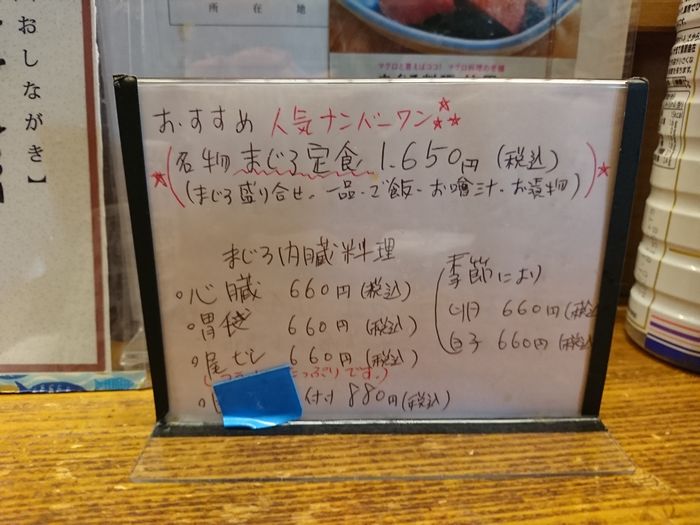 所在地
おしながき】
マグロと言えばココ! マグロ料理の老舗
おすすめ 人気ナンバーワン
名物 まぐろ定食 1.650円 (税込)
(まぐろ盛り合せ、一品、ご飯、お噌汁、お漬物)
まぐろ内臓料理
心臓 660円(税込)
胃袋 660円(税込)
尾ビレ 660円(税込)
っぷりです。)
付 880円(税込)
季節により
卵 660円(税込
白子 660円(税込